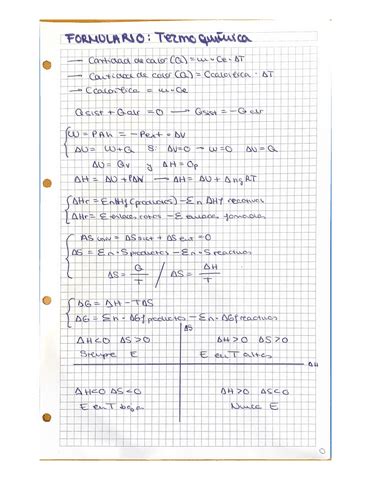 FORMULARIO: Termoquímica
— Cantidad de calor (Q) = m · Ce · ΔT
— Cantidad de calor (Q) = Ccalorífica · ΔT
— Ccalorífica = m · Ce
Qsist + Qalr = 0 → Qsist = - Qalr
W = PΔV = - Pext = ΔV
ΔU = W + Q Si ΔV=0 → W=0 ΔU = Q
ΔU = Qv y ΔH = Qp
ΔH = ΔU + PΔV → ΔH = ΔU + Δng RT
ΔHr = Σn Hf (productos) - Σn ΔHf reactivos
ΔHr = Σ enlaces rotos - Σ enlaces formados
ΔS univ = ΔS sist + ΔS ext = 0
ΔS = Σn · S productos - Σn · S reactivos
ΔS = Q/T / ΔS = ΔH/T
ΔG = ΔH - TΔS
ΔG = Σn · ΔGf productos - Σn · ΔGf reactivos
ΔS
ΔH<0 ΔS>0 ΔH>0 ΔS>0
Siempre E E en T altas
ΔH
ΔH<0 ΔS<0 ΔH>0 ΔS<0
E en T bajas Nunca E